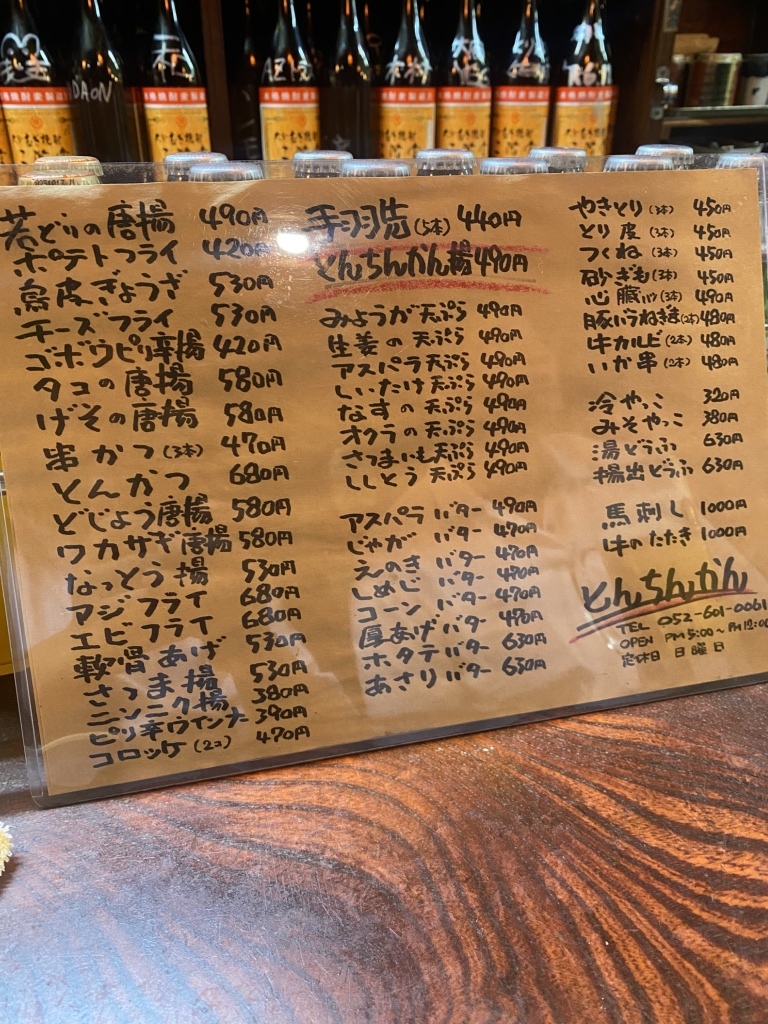 若どりの唐揚 490円
ポテトフライ 420円
鳥皮ぎょうざ 530円
チーズフライ 530円
ゴボウピリ辛揚 420円
タコの唐揚 580円
げその唐揚 580円
串かつ(3本) 470円
とんかつ 680円
どじょう唐揚 580円
ワカサギ唐揚 580円
なっとう揚 530円
アジフライ 680円
エビフライ 680円
軟骨あげ 530円
さつま揚 530円
ニンニク揚 380円
ピリ辛ウインナ 390円
コロッケ(2コ) 470円
手羽先(5本) 440円
とんちんかん揚 490円
みょうが天ぷら 490円
生姜の天ぷら 490円
アスパラ天ぷら 490円
しいたけ天ぷら 490円
なすの天ぷら 490円
オクラの天ぷら 490円
さつまいも天ぷら 490円
ししとう天ぷら 490円
アスパラバター 490円
じゃがバター 470円
えのきバター 470円
しめじバター 470円
コーンバター 470円
厚あげバター 470円
ホタテバター 630円
あさりバター 630円
やきとり(3本) 450円
とり皮(3本) 450円
つくね(3本) 450円
砂ぎも(3本) 450円
心臓(3本) 490円
豚バラねぎま 480円
牛カルビ(2本) 480円
いか串(2本) 480円
冷やっこ 320円
みそやっこ 380円
湯どうふ 630円
揚出どうふ 630円
馬刺し 1000円
牛のたたき 1000円
とんちんかん
TEL 052-601-0061
OPEN PM5:00~PM12:00
定休日 日曜日